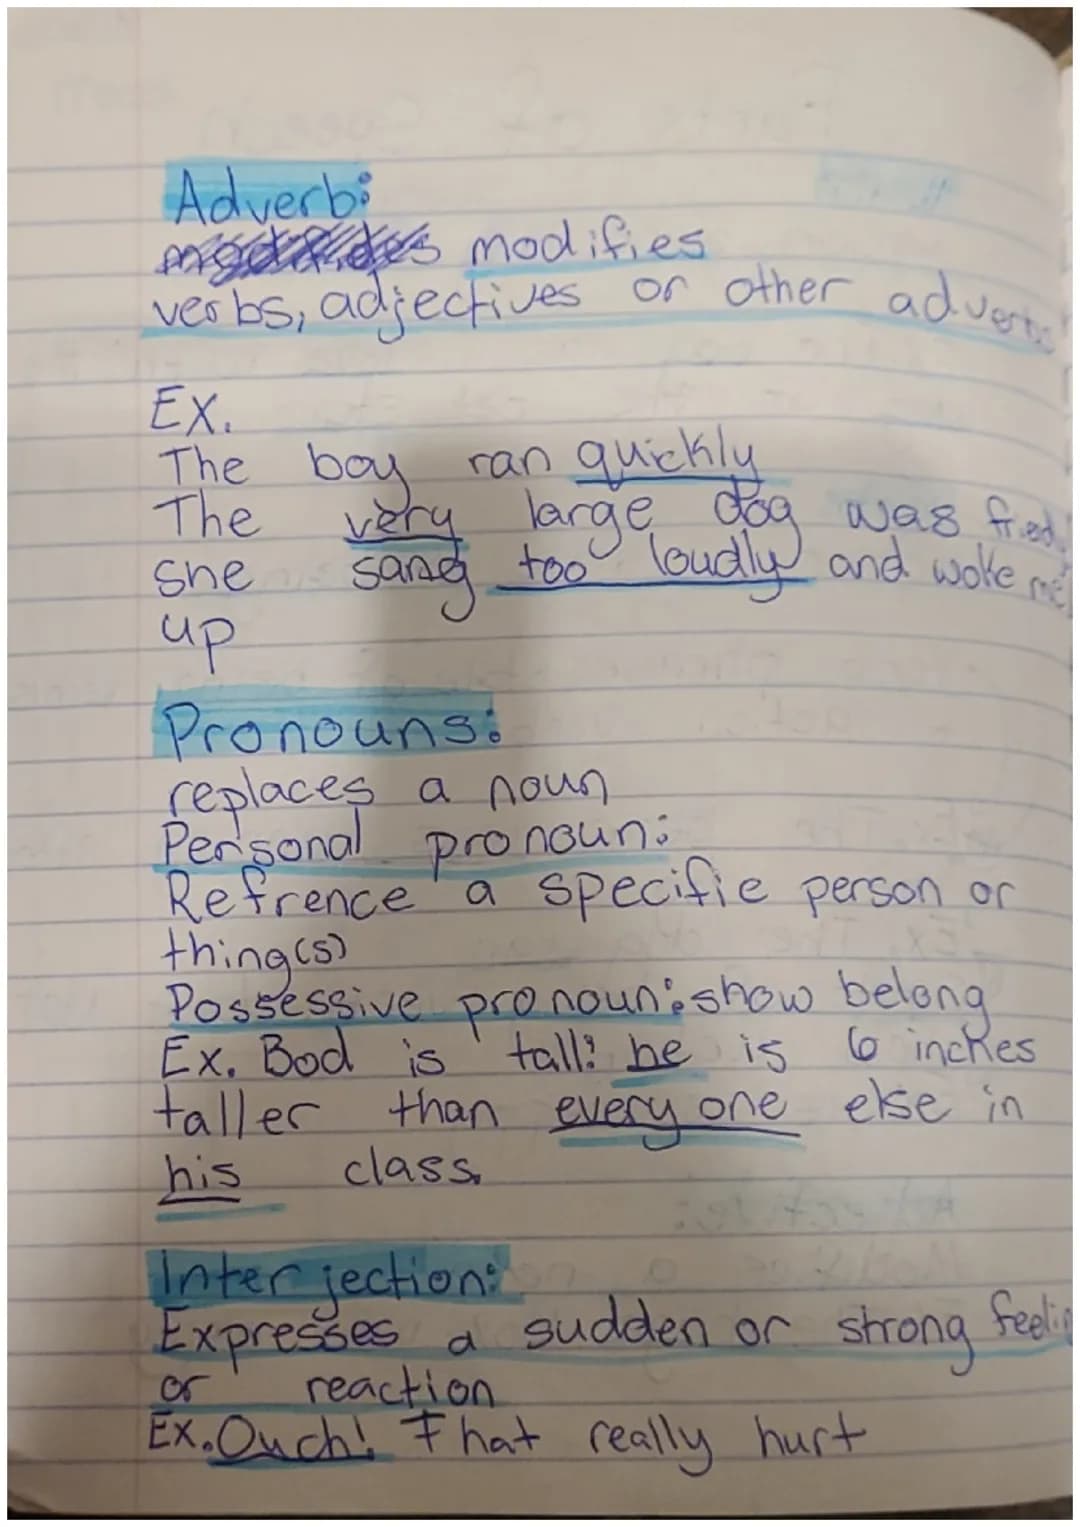 Adverb:
modifies
verbs, adjectives or other adverbs
EX.
The boy ran quickly
The very large dog was
she sang too loudly and woke me
up
Pronouns:
replaces a noun
Personal pronoun:
Refrence a specific person or
thing(s)
Possessive pronoun: show belong
Ex. Bod is tall: he is 6 inches
taller than everyone else in
his class.
Interjection:
Expresses a sudden or strong feelin
or reaction
Ex. Ouch! That really hurt